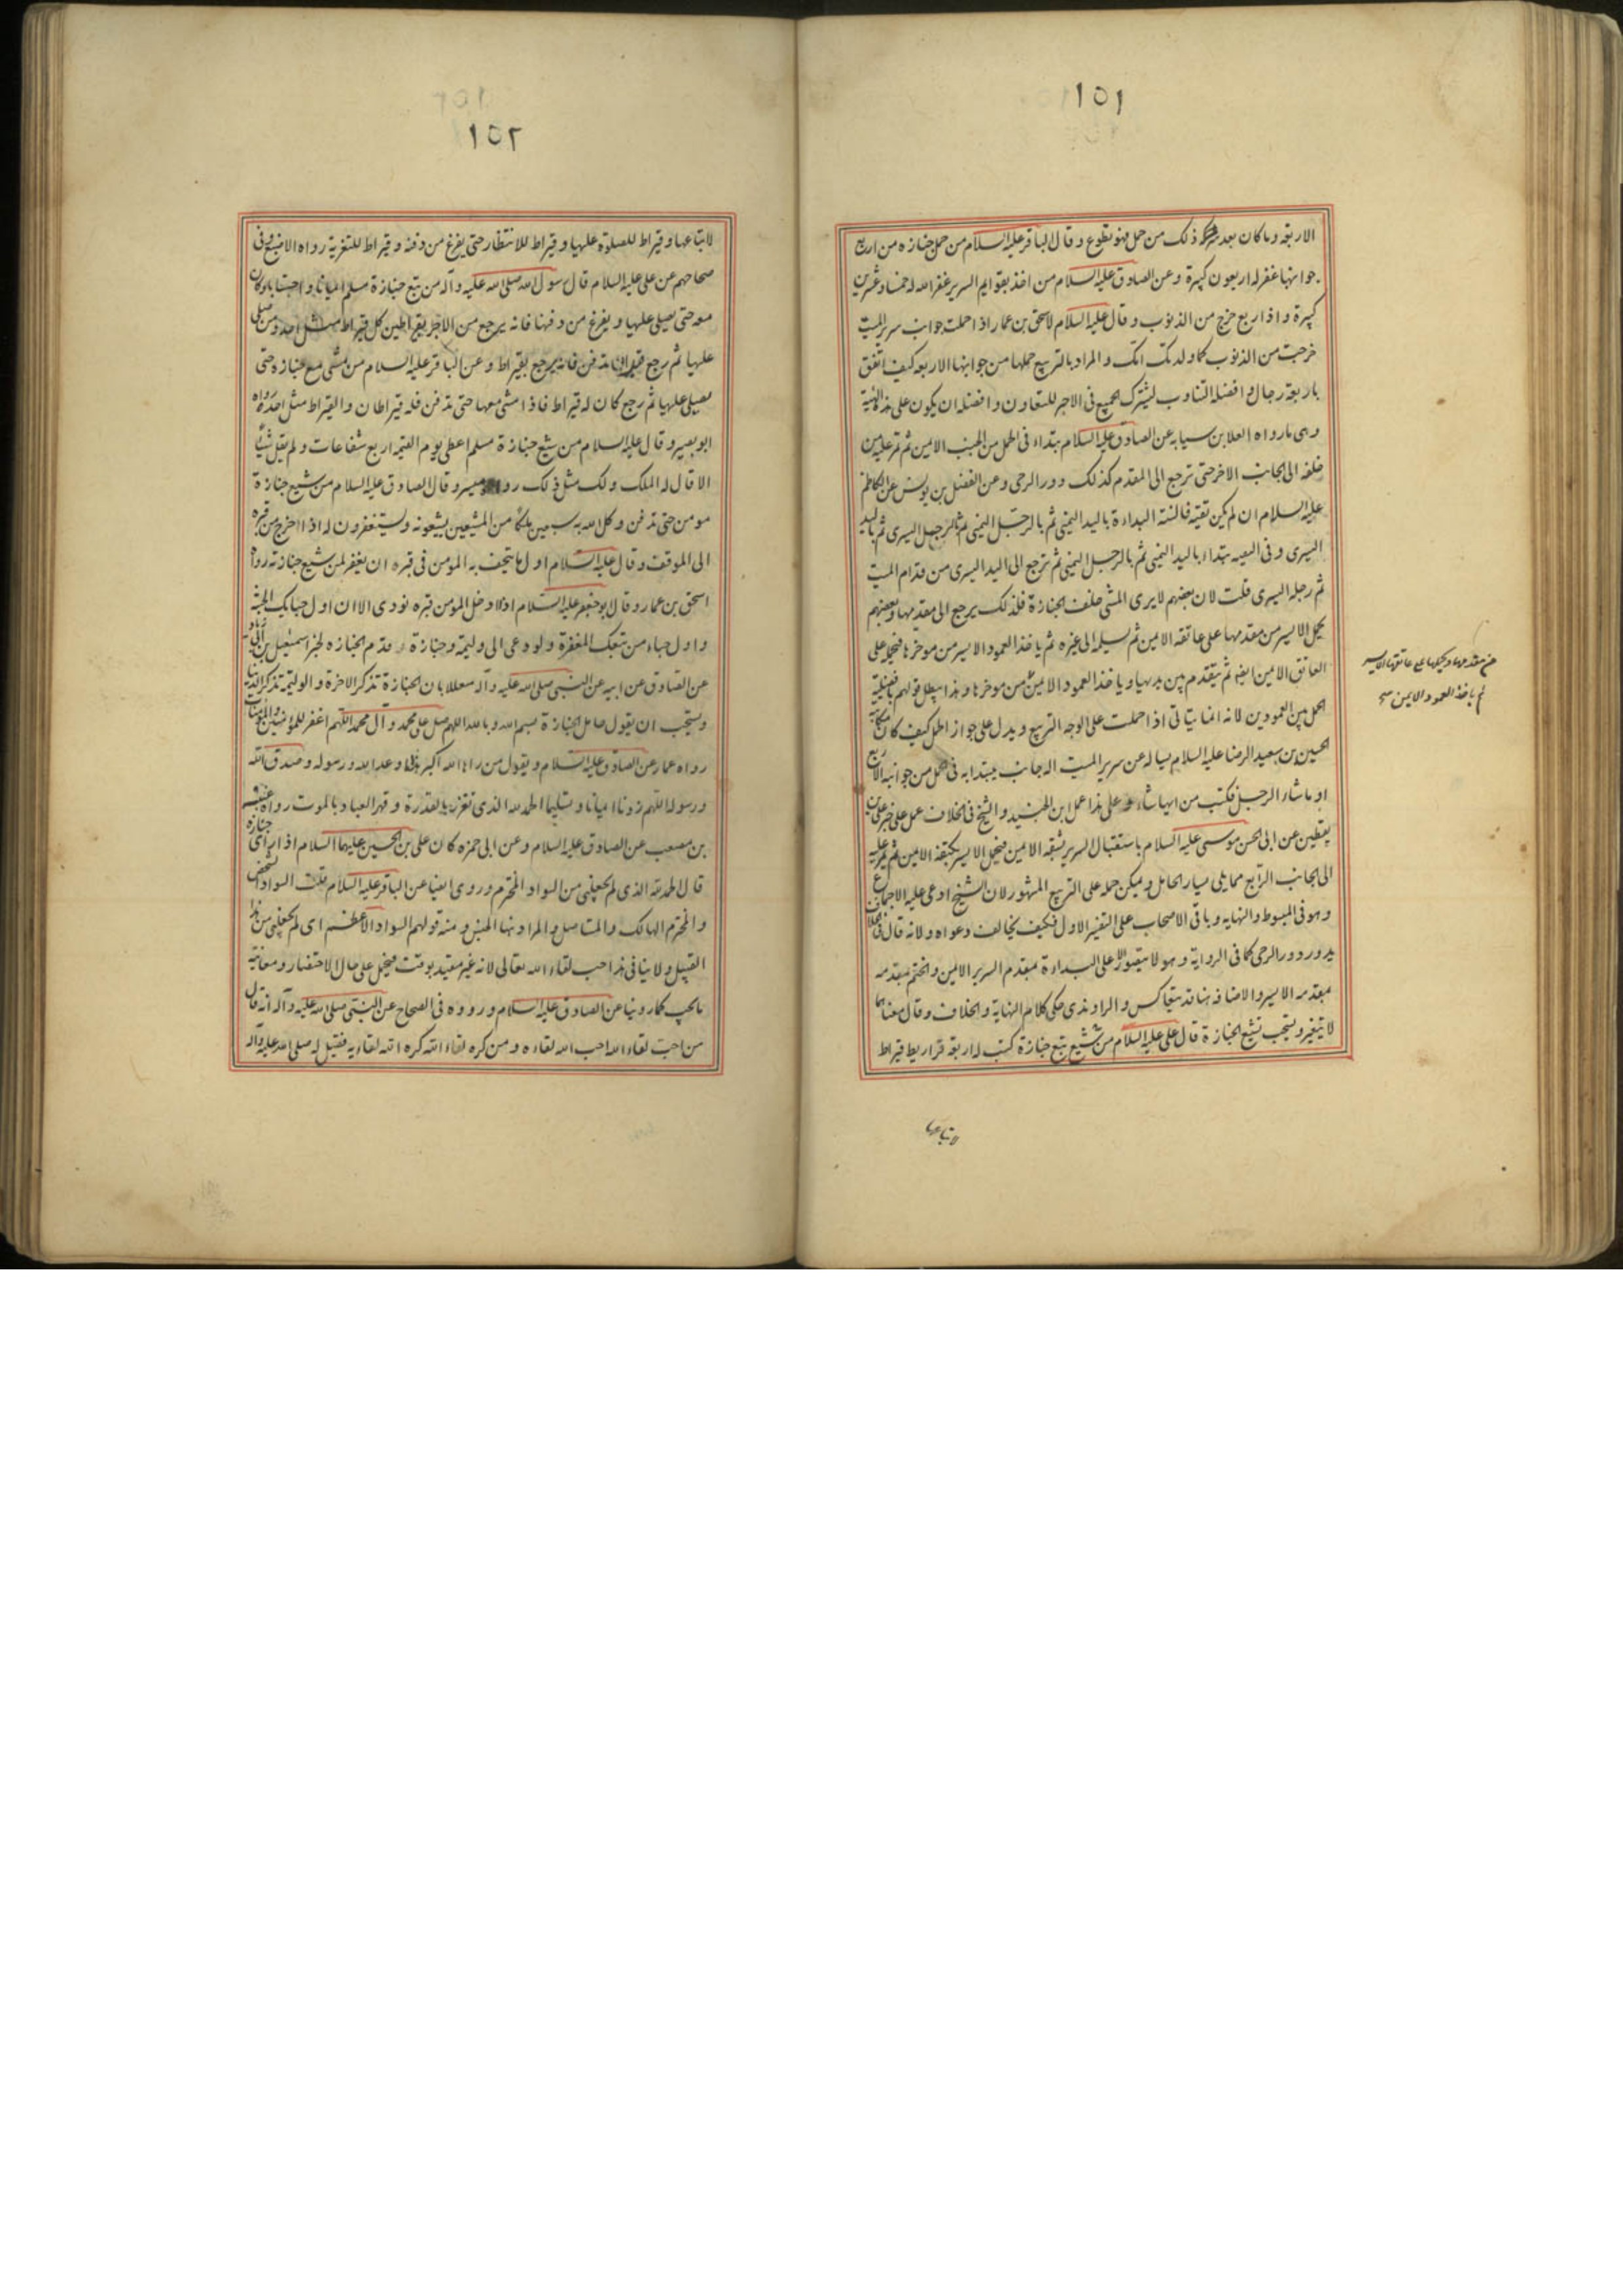 ١٥١
الاربعة وما كان بعد ذلك من حمل فهو تطوع وقال الباقر عليه السلام من حمل جنازه من اربع
جوانبها غفر له اربعون كبيرة وعن الصادق عليه السلام من اخذ بقوايم السرير غفر الله له خمسا وعشرين
كبيرة واذا ربع خرج من الذنوب وقال عليه السلام لاسحق بن عمار اذا حملت جوانب سرير الميت
خرجت من الذنوب كما ولدتك امك والمراد بالتربيع حملها من جوانبها الاربعه كيف اتفق
باربعة رجال وافضله التناوب ليشترك الجميع فى الاجر للتعاون وافضله ان يكون على هذه الهيئة
وهى ما رواه العلا بن سيابه عن الصادق عليه السلام تبتداء فى الحمل من الجنب الايمن ثم تمر عليه من
خلفه الى الجانب الاخر حتى ترجع الى المقدم كذلك دور الرحى وعن الفضل بن يونس عن الكاظم
عليه السلام ان لم يكن تقية فالسنة البداءة باليد اليمنى ثم بالرجل اليمنى ثم بالرجل اليسرى ثم باليد
اليسرى وفى التقيه يبتداء باليد اليمنى ثم بالرجل اليمنى ثم ترجع الى اليد اليسرى من قدام الميت
ثم رجله اليسرى قلت لان بعضهم لا يرى المشى خلف الجنازة فلذلك يرجع الى مقدمها وبعضهم
يحمل الايسر من مقدمها على عاتقه الايمن ثم يسلمه الى غيره ثم ياخذ العمود الايسر من موخرها فيحمله على
العاتق الايمن ايضا ثم يتقدم بين يديها وياخذ العمود الايمن من موخرها وهذا يبطل قولهم بافضلية
الحمل بين العمودين لانه انما يتاتى اذا حملت على الوجه التربيع ويدل على جواز الحمل كيف كان مكاتبة
الحسين بن سعيد الرضا عليه السلام يساله عن سرير الميت اله جانب يبتدا به فى الحمل من جوانبه الاربع
او ما شاء الرجل فكتب من ايها شاء وعلى هذا عمل ابن الجنيد والشيخ فى الخلاف عمل على خبر على بن
يقطين عن ابى الحسن موسى عليه السلام باستقبال السرير بشقه الايمن فيحمل الايسر بكتفه الايمن ثم يمر عليه
الى الجانب الرابع مما يلى يسار الحامل ويمكن حمله على التربيع المشهور لان الشيخ ادعى عليه الاجماع
وهو فى المبسوط والنهايه وباقى الاصحاب على التفسير الاول فكيف يخالف دعواه ولانه قال فى الخلاف
يدور دور الرحى كما فى الرواية وهو لا يتصور الا على البداءة بمقدم السرير الايمن والختم بمقدمه
بمقدمه الايسر والاضافه هنا قد تتعاكس والراوندى حكى كلام النهاية والخلاف وقال معناهما
لا يتغير ويستحب تشيع الجنازة قال على عليه السلام من شيع تبع جنازة كتب له اربعة قراريط قيراط
من مقدمها ويحملها على عاتقه الايسر
ثم ياخذ العمود الايمن صح
لاتباعها
١٥٢
لاتباعها وقيراط للصلوة عليها وقيراط للانتظار حتى يفرغ من دفنه وقيراط للتعزية رواه الاصبغ وفى
صحاحهم عن على عليه السلام قال رسول الله صلى الله عليه وآله من تبع جنازة مسلم ايمانا واحتسابا وكان
معه حتى يصلى عليها ويفرغ من دفنها فانه يرجع من الاجر بقيراطين كل قيراط مثل احد ومن صلى
عليها ثم رجع قبل ان تدفن فانه يرجع بقيراط وعن الباقر عليه السلام من مشى مع جنازه حتى
يصلى عليها ثم رجع كان له قيراط فاذا مشى معها حتى تدفن فله قيراطان والقيراط مثل احد رواه
ابو بصير وقال عليه السلام من شيع جنازة مسلم اعطى يوم القيمة اربع شفاعات ولم يقل شيئا
الا قال له الملك ولك مثل ذلك رواه ميسر وقال الصادق عليه السلام من شيع جنازة
مومن حتى تدفن وكل الله به سبعين ملكا من المشيعين يشيعونه ويستغفرون له اذا اخرج من قبره
الى الموقف وقال عليه السلام اول ما يتحف به المومن فى قبره ان يغفر لمن شيع جنازته رواه
اسحق بن عمار وقال ابو جعفر عليه السلام اذا دخل المومن قبره نودى الا ان اول حبايك الجنة
واول حباء من تبعك المغفرة ولو دعى الى وليمة وجنازة قدم الجنازه لخبر اسمعيل بن ابى زياد
عن الصادق عن ابيه عن النبى صلى الله عليه وآله معللا بان الجنازة تذكر الاخرة والوليمة تذكر الدنيا
ويستحب ان يقول حامل الجنازة بسم الله وبالله اللهم صل على محمد وآل محمد اللهم اغفر للمؤمنين والمؤمنات
رواه عمار عن الصادق عليه السلام ويقول من راها الله اكبر هذا ما وعدنا الله ورسوله وصدق الله
ورسوله اللهم زدنا ايمانا وتسليما الحمد لله الذى تعزز بالقدرة وقهر العباد بالموت رواه عنبسه
بن مصعب عن الصادق عليه السلام وعن ابى حمزه كان على بن الحسين عليهما السلام اذا راى جنازه
قال الحمد لله الذى لم يجعلنى من السواد المخترم وروى ايضا عن الباقر عليه السلام قلت السواد الشخص
والمخترم الهالك والمستاصل والمراد هنا الجنس ومنه قولهم السواد الاعظم اى لم يجعلنى من هذا
القبيل ولا ينافى هذا حب لقاء الله تعالى لانه غير مقيد بوقت فيحمل على حال الاحتضار ومعاينة
ما يحب كما روينا عن الصادق عليه السلام ورووه فى الصحاح عن النبى صلى الله عليه وآله انه قال
من احب لقاء الله احب الله لقاءه ومن كره لقاء الله كره الله لقاءه فقيل له صلى الله عليه وآله